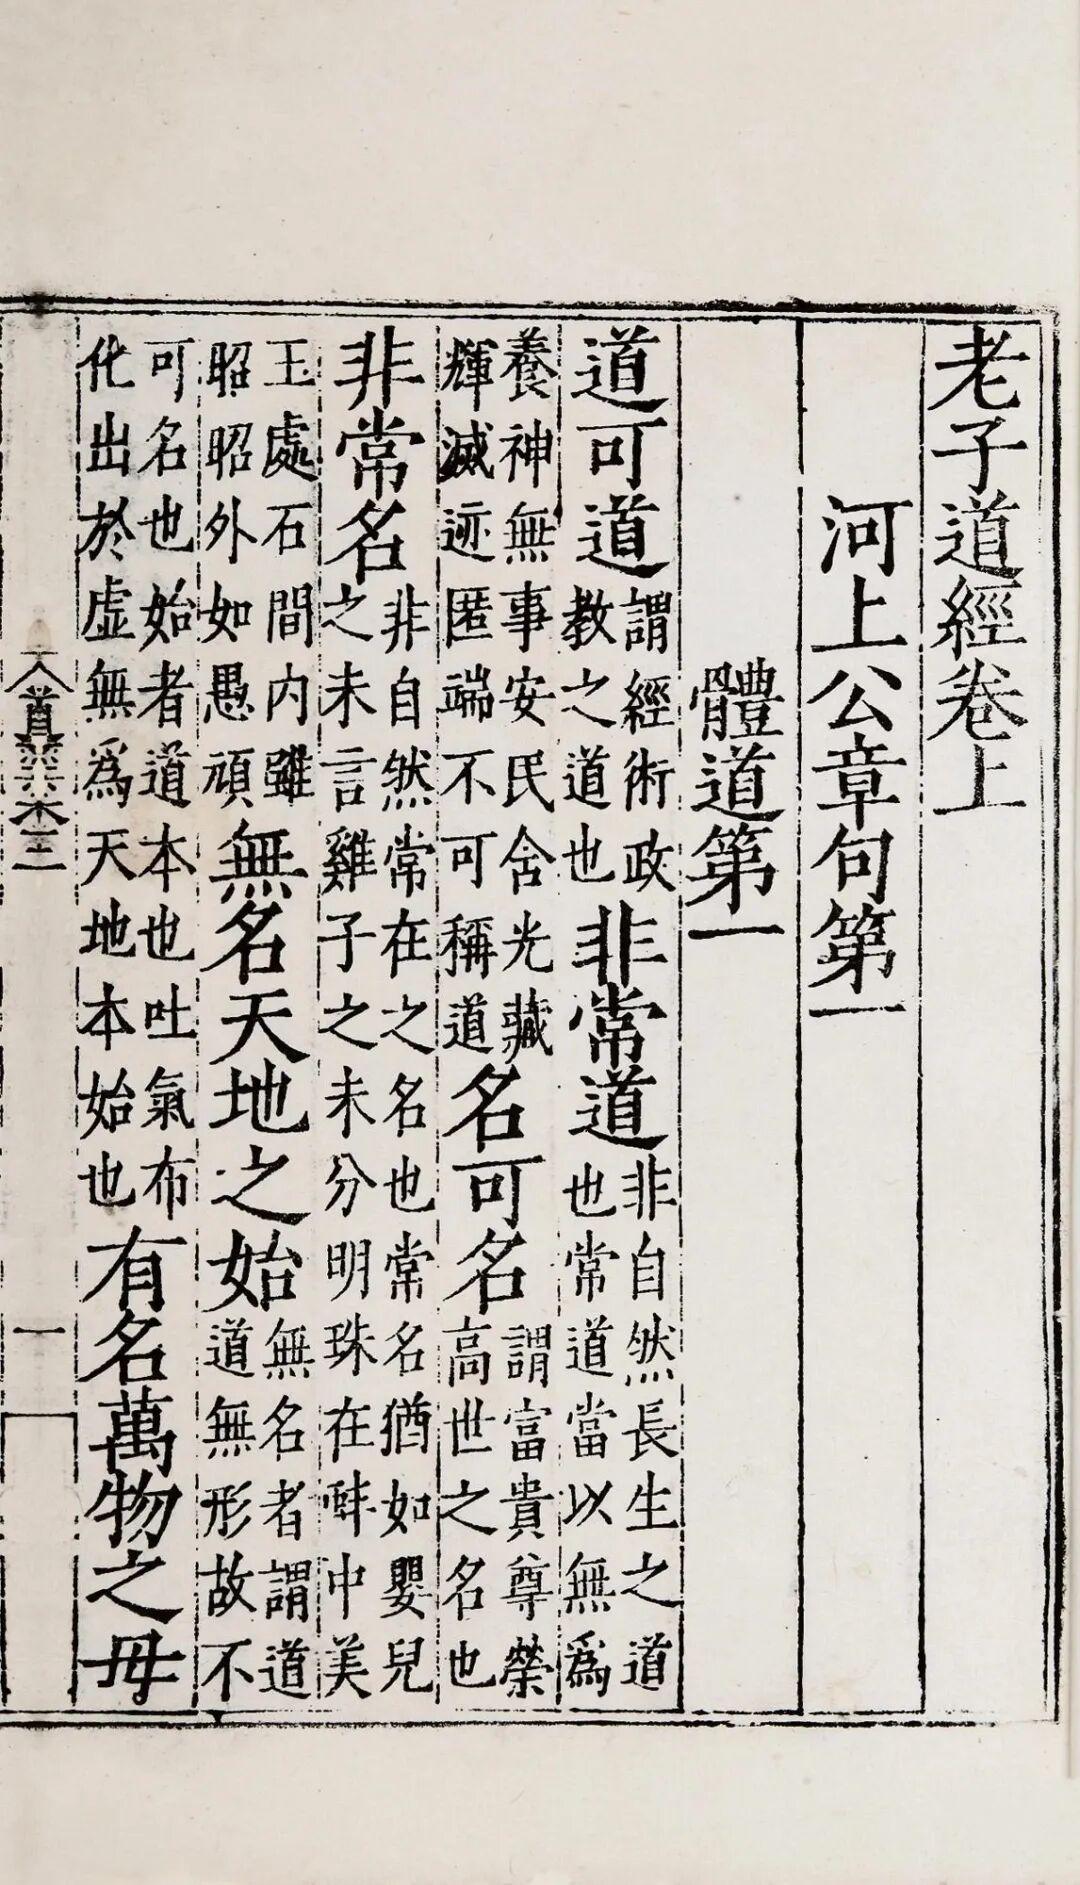 老子道經卷上
河上公章句第一
體道第一
道可道謂經術政教之道也非常道非自然長生之道也常道當以無爲
養神無事安民含光藏輝滅迹匿端不可稱道名可名謂富貴尊榮高世之名也
非常名非自然常在之名也常名猶如嬰兒之未言雞子之未分明珠在蚌中美
玉處石間内雖昭昭外如愚頑無名天地之始無名者謂道道無形故不
可名也始者道本也吐氣布化出於虚無爲天地本始也有名萬物之毋
一